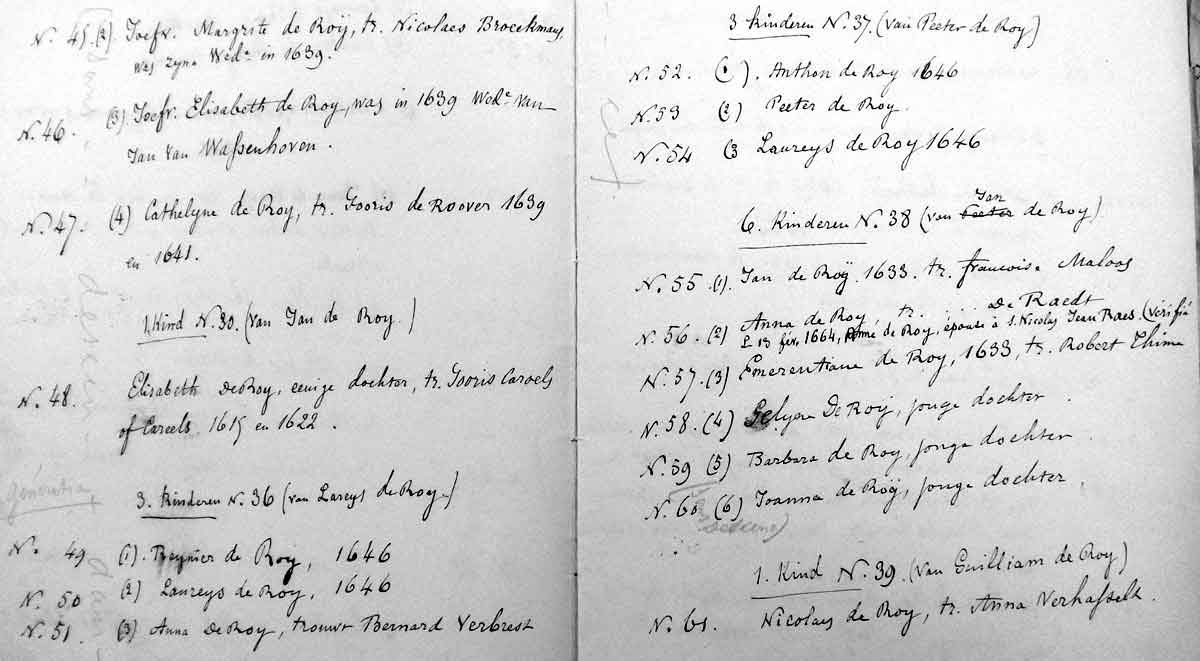 N. 45. (2) Joefr. Margrite de Roÿ, tr. Nicolaes Broeckmans,
was zyne Wedᵉ in 1639.
N. 46. (3) Joefr. Elisabeth de Roy, was in 1639 Wedᵉ van
Jan van Wassenhoven.
N. 47. (4) Cathelyne de Roy, tr. Gooris de Roover 1639
en 1641.
1. Kind N. 30. (van Jan de Roy.)
N. 48. Elisabeth De Roy, eenige dochter, tr. Gooris Caroels
of Careels 1615 en 1622.
Generatie
3. kinderen N. 36 (van Lareys de Roy.)
N. 49 (1). Reynier de Roy, 1646
N. 50 (2) Laureys de Roy, 1646
N. 51. (3) Anna De Roy, trouwt Bernard Verbrest
3 kinderen N. 37. (van Peeter de Roy)
N. 52. (1). Anthon de Roy 1646
N. 53 (2) Peeter de Roy.
N. 54 (3 Laureys de Roy 1646
Jan
6. Kinderen N. 38 (van Peeter de Roy)
N. 55 (1). Jan de Roÿ 1633. tr. francoise Maloos
N. 56 (2) Anna de Roy, tr. .... De Raedt
Le 13 fév. 1664, Anne de Roy, épouse à S. Nicolas Jean Raes. (vérifié
N. 57. (3) Emerentiane de Roy, 1633, tr. Robert Thime
N. 58. (4) Gelyne De Roÿ, jonge dochter.
N. 59 (5) Barbara de Roy, jonge dochter
N. 60 (6) Joanna de Roÿ, jonge dochter.
1. Kind N. 39. (van Guilliam de Roy)
N. 61. Nicolays de Roy, tr. Anna Verhasselt.